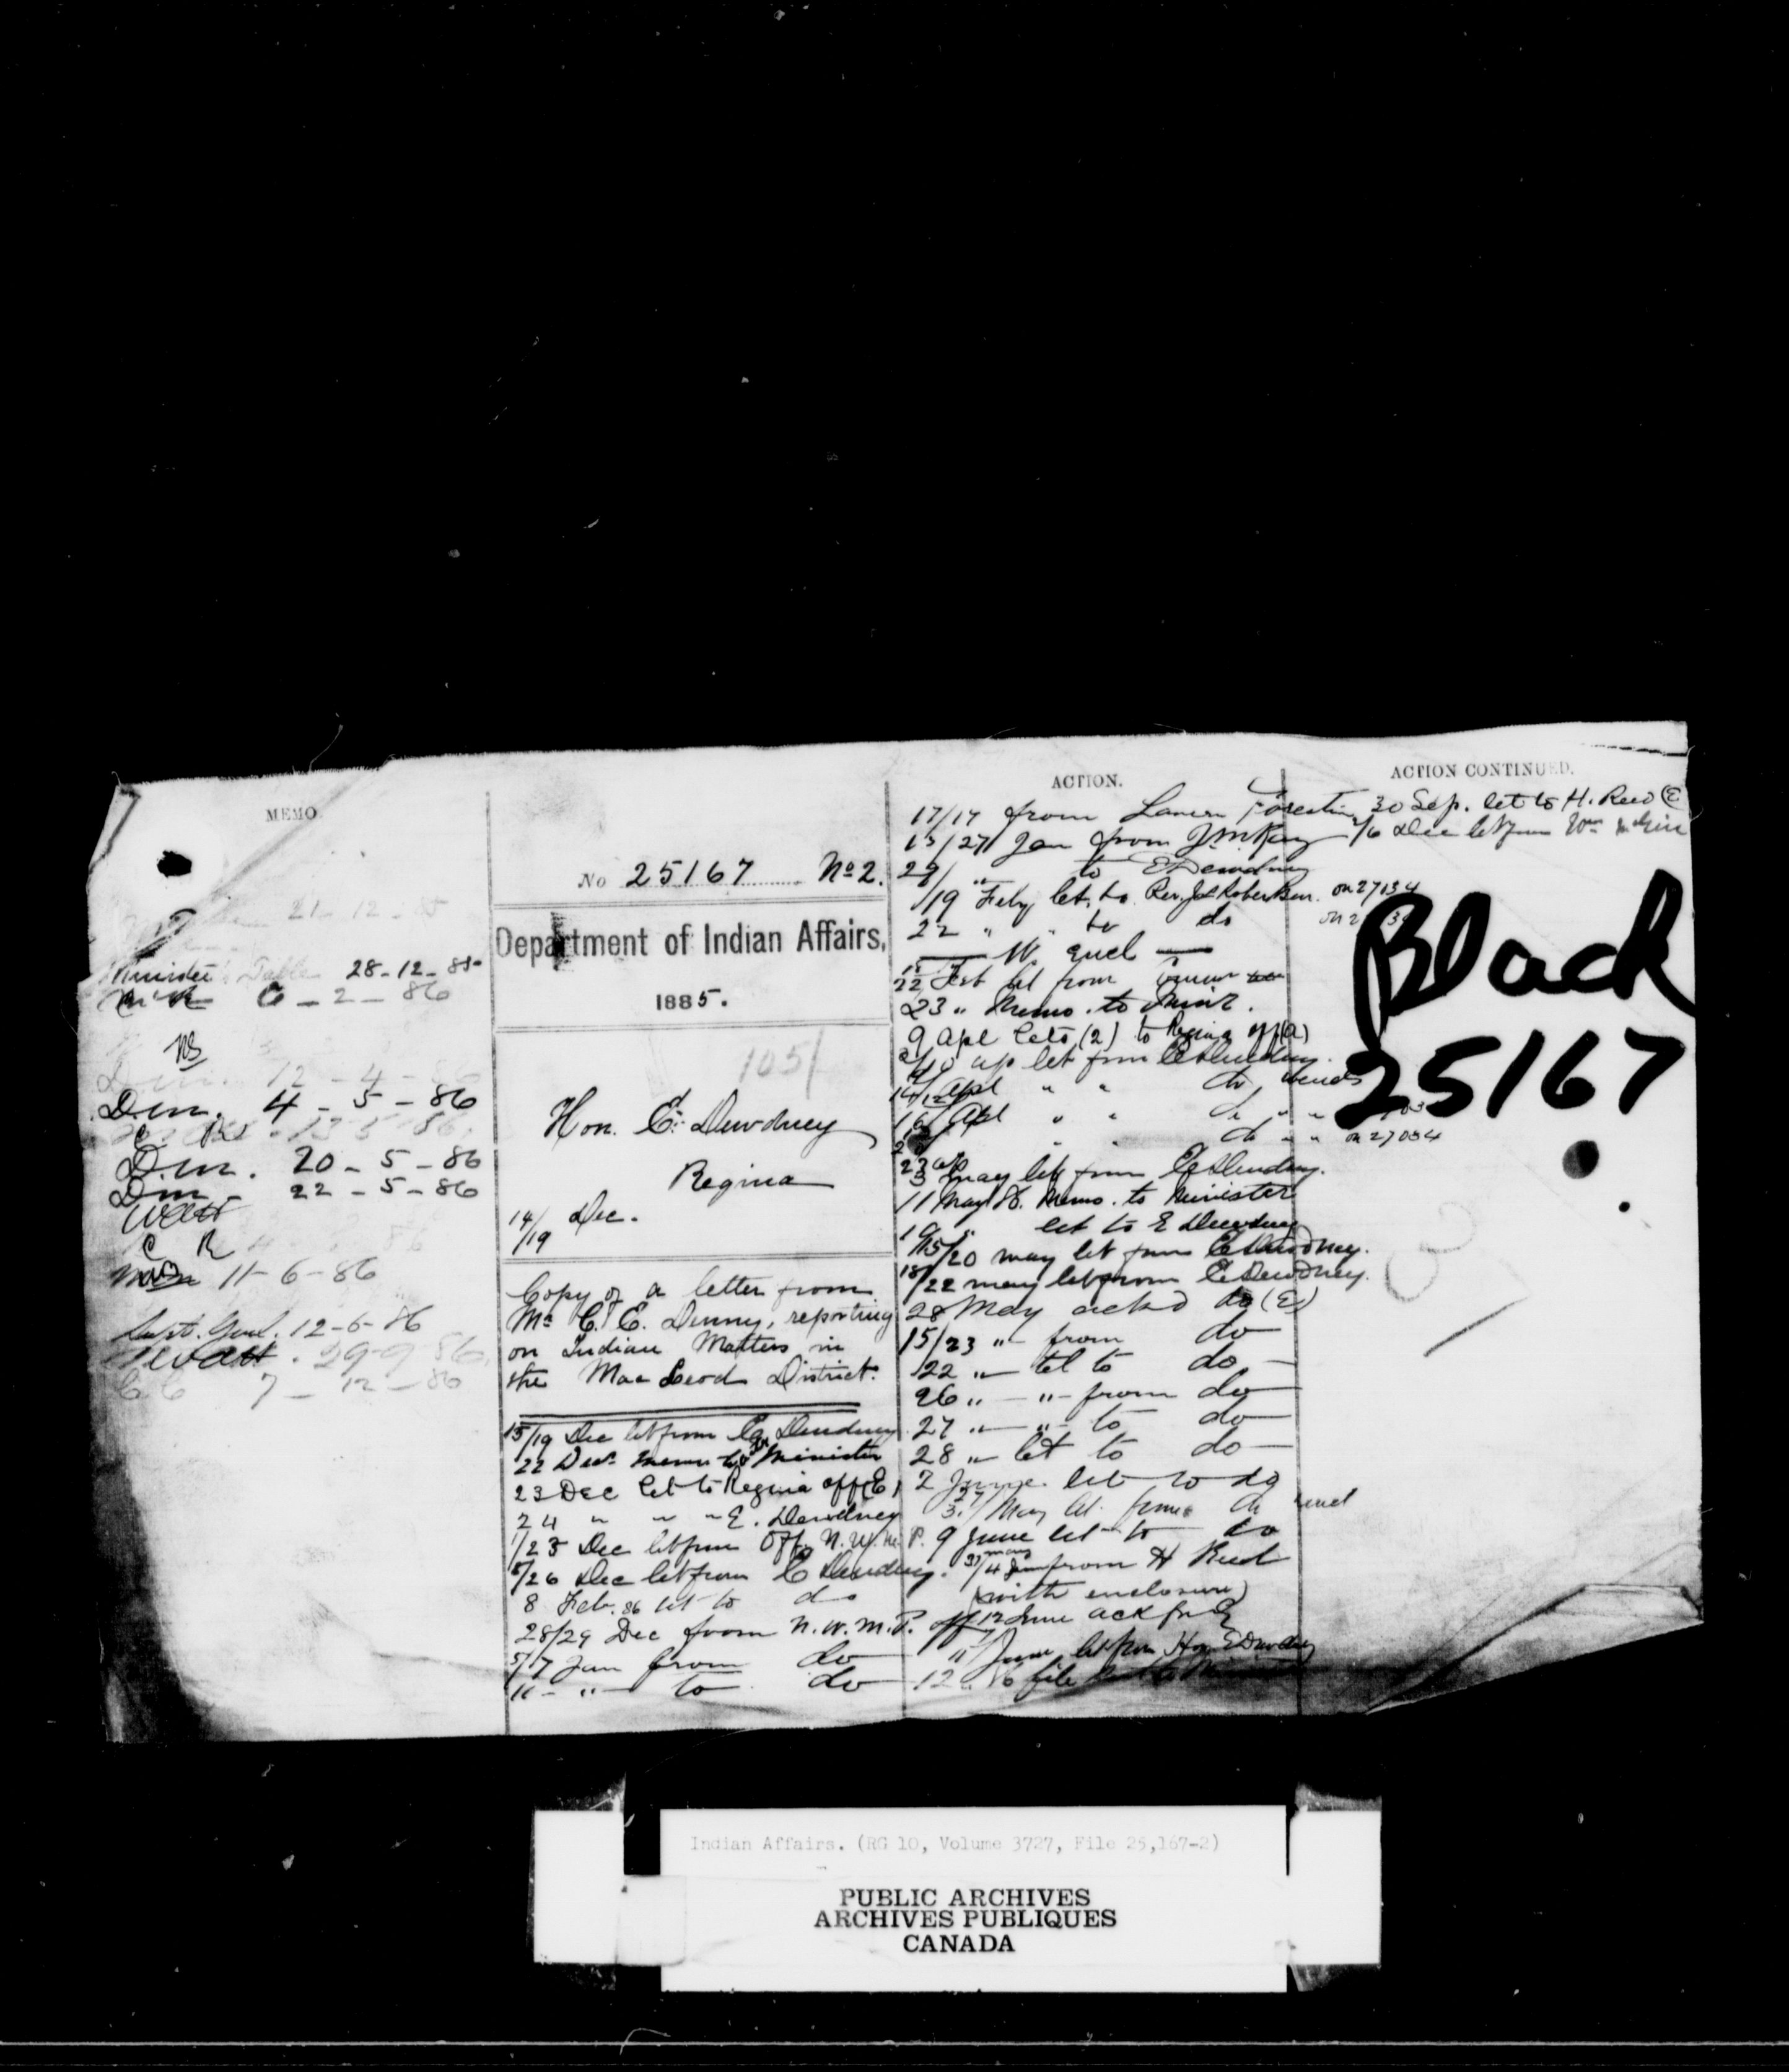 MEMO
21-12-85
Minister's Table 28-12-85
6-2-86
12-4-86
D.m. 4-5-86
D.m. 20-5-86
Dm 22-5-86
C R
11-6-86
Supt. Genl. 12-6-86
29-9-86
CC 7-12-86
No 25167 No 2.
Department of Indian Affairs,
1885.
1051
Hon. E. Dewdney
Regina
14/19 Dec.
Copy of a letter from
Mr C. E. Denny, reporting
on Indian Matters in
the MacLeod District.
15/19 Dec let from E Dewdney
22 Decr memo to Minister
23 Dec let to Regina off (E)
24 " " " E. Dewdney
1/23 Dec let from Off. N.W.M.P.
8/26 Dec let from E Dewdney.
8 Feb. 86 let to do
28/29 Dec from N.W.M.P. off
5/7 Jan from do
11 - " - to do
ACTION.
17/17 from
13/27 Jan from J. McKay
29/ " to E Dewdney
/19 Feby let. to Rev. Jas Robertson. on 27134
22 " " to do
W. encl
22 Feb let from
23 " Memo. to Minr.
9 Apl lets (2) to Regina off (A)
/10 ap let from E Dewdney.
Apl " " do
16/ Apl " " do " "
do " " on 27034
3 May let from E Dewdney.
11 May 86. Memo. to Minister
let to E Dewdney
15/20 may let from E Dewdney.
18/22 may let from E Dewdney.
28 May ackd do (E)
15/23 " from do
22 " tel to do
26 " - " - from do
27 " - " - to do
28 " let to do
2 June. let to do
27/3 / May let. from do encl
9 June let to do
31 may/4 June from H Reed
(with enclosure)
12 June ack
" June let from Hon E Dewdney
12 " 86 file
ACTION CONTINUED.
30 Sep. let to H. Reed (E)
/6 Dec let from Wm
Black
25167
Indian Affairs. (RG 10, Volume 3727, File 25,167-2)
PUBLIC ARCHIVES
ARCHIVES PUBLIQUES
CANADA